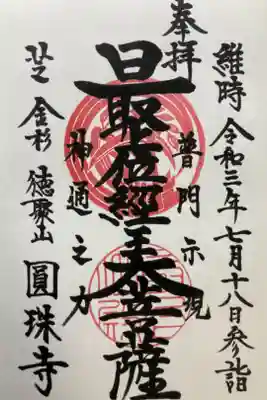 維時 令和三年七月十八日参詣
奉拝
普門示現
最位經王大菩薩
神通之力
芝 金杉 徳聚山 圓珠寺